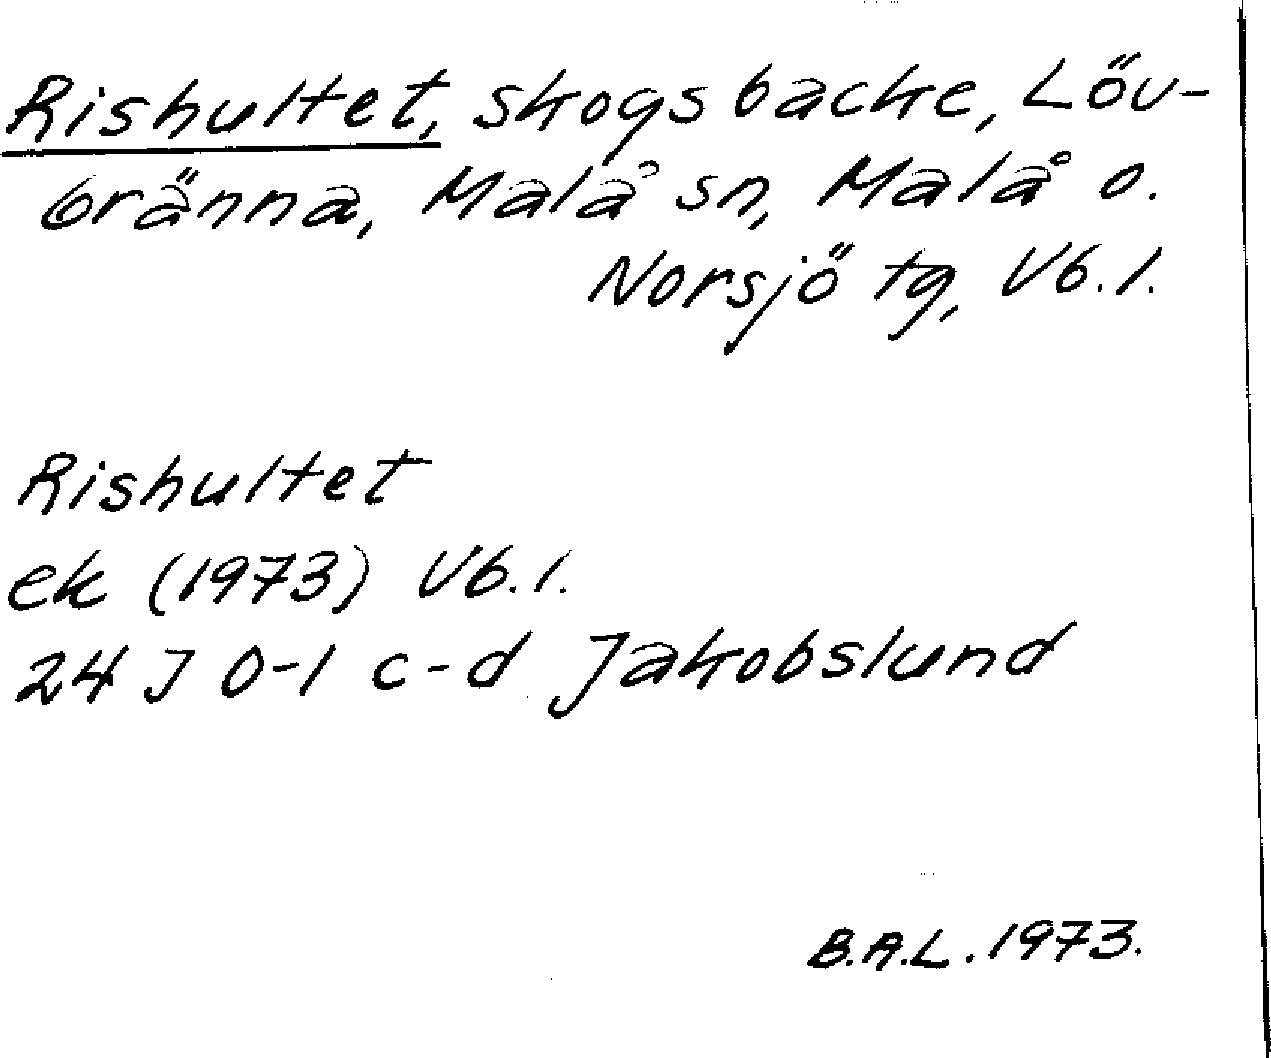 Rishultet, skogsbacke, Löv-
bränna, Malå sn, Malå o.
Norsjö tg, Vb.l.
Rishultet
ek (1973) Vb.l.
24 J 0-1 c-d Jakobslund
B.A.L. 1973.